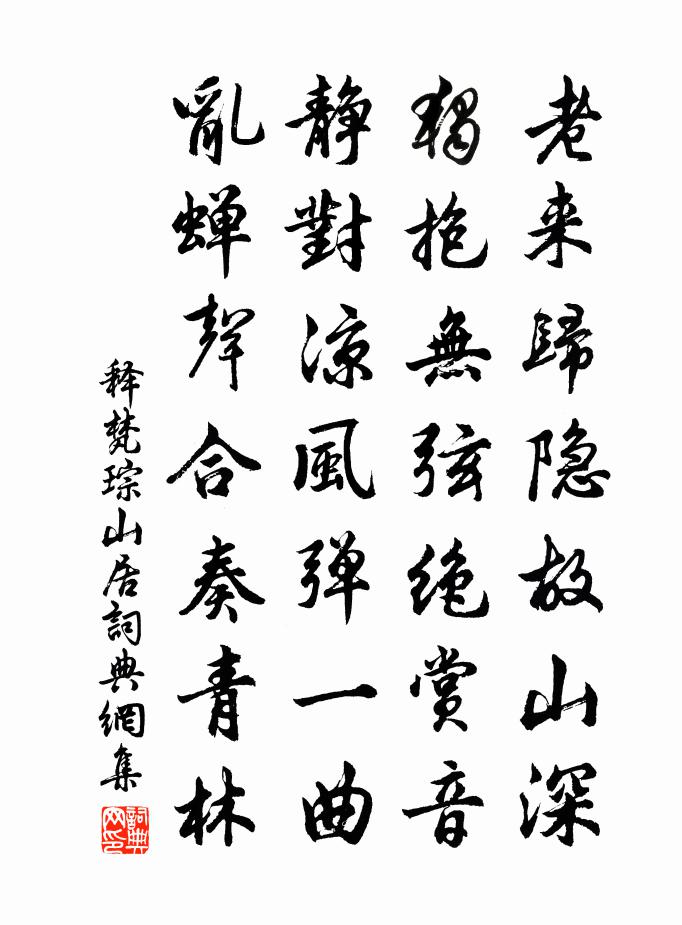 老来歸隐故山深
獨抱無弦绝賞音
静對涼風彈一曲
亂蟬聲合奏青林
释梵琮山居詞典網集
詞典网印